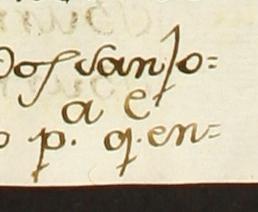 Dos sanfo=
a e
o p. q.en=